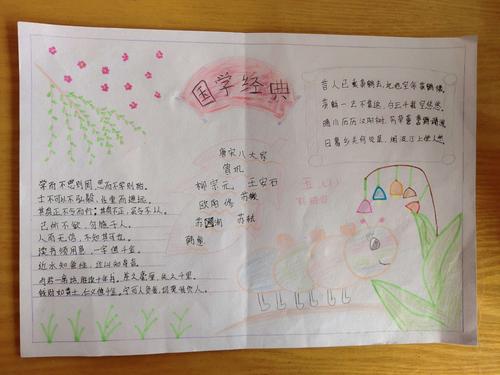 国学经典
昔人已乘黄鹤去,此地空余黄鹤楼。
黄鹤一去不复返,白云千载空悠悠。
晴川历历汉阳树,芳草萋萋鹦鹉洲。
日暮乡关何处是,烟波江上使人愁。
唐宋八大家
曾巩
柳宗元 王安石
欧阳修 苏辙
苏洵 苏轼
韩愈
学而不思则罔,思而不学则殆。
士不可以不弘毅,任重而道远。
其身正不令而行:其身不正,虽令不从。
己所不欲,勿施于人。
人而无信,不知其可也。
读书须用意,一字值千金。
近水知鱼性,近山知鸟音。
与君一席话,胜读十年书。差之毫厘,失之千里。
钱财如粪土,仁义值千金。宁可人负我,切莫我负人。